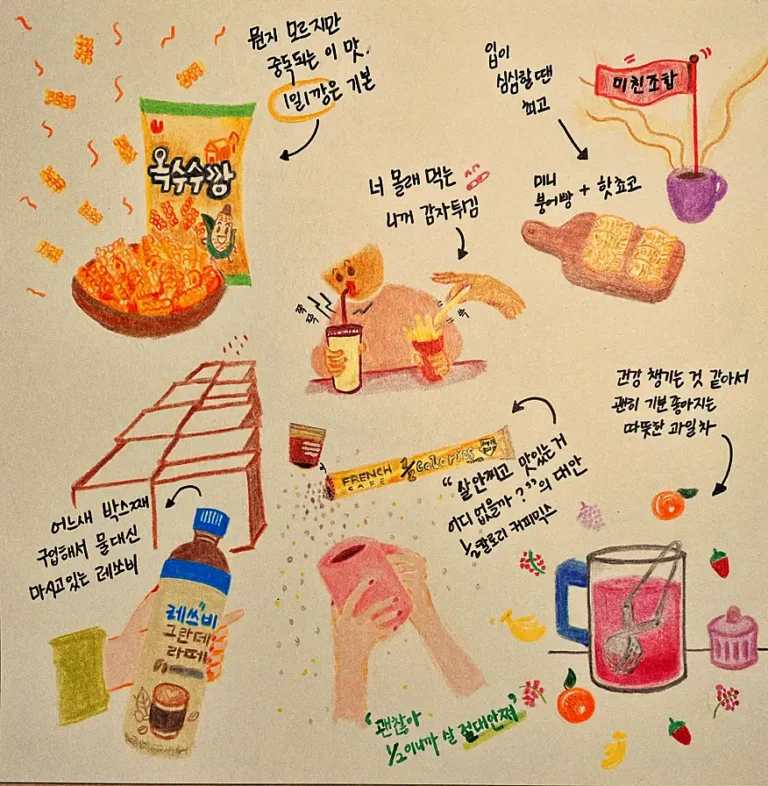 뭔지 모르지만
중독되는 이 맛.
1일1깡은 기본
옥수수깡
입이
심심할땐
최고
미친조합
미니
붕어빵 + 핫쵸코
너 몰래 먹는
나의 감자튀김
쪽
쪽
쏙
어느새 박스째
구입해서 물 대신
마시고 있는 레쓰비
레쓰비
그란데
라떼
FRENCH
CAFE
½ calories
“살 안찌고 맛있는거
어디 없을까?”의 대안
½칼로리 커피믹스
건강 챙기는 것 같아서
괜히 기분 좋아지는
따뜻한 과일차
“괜찮아
½이니까 살 절대안쪄”